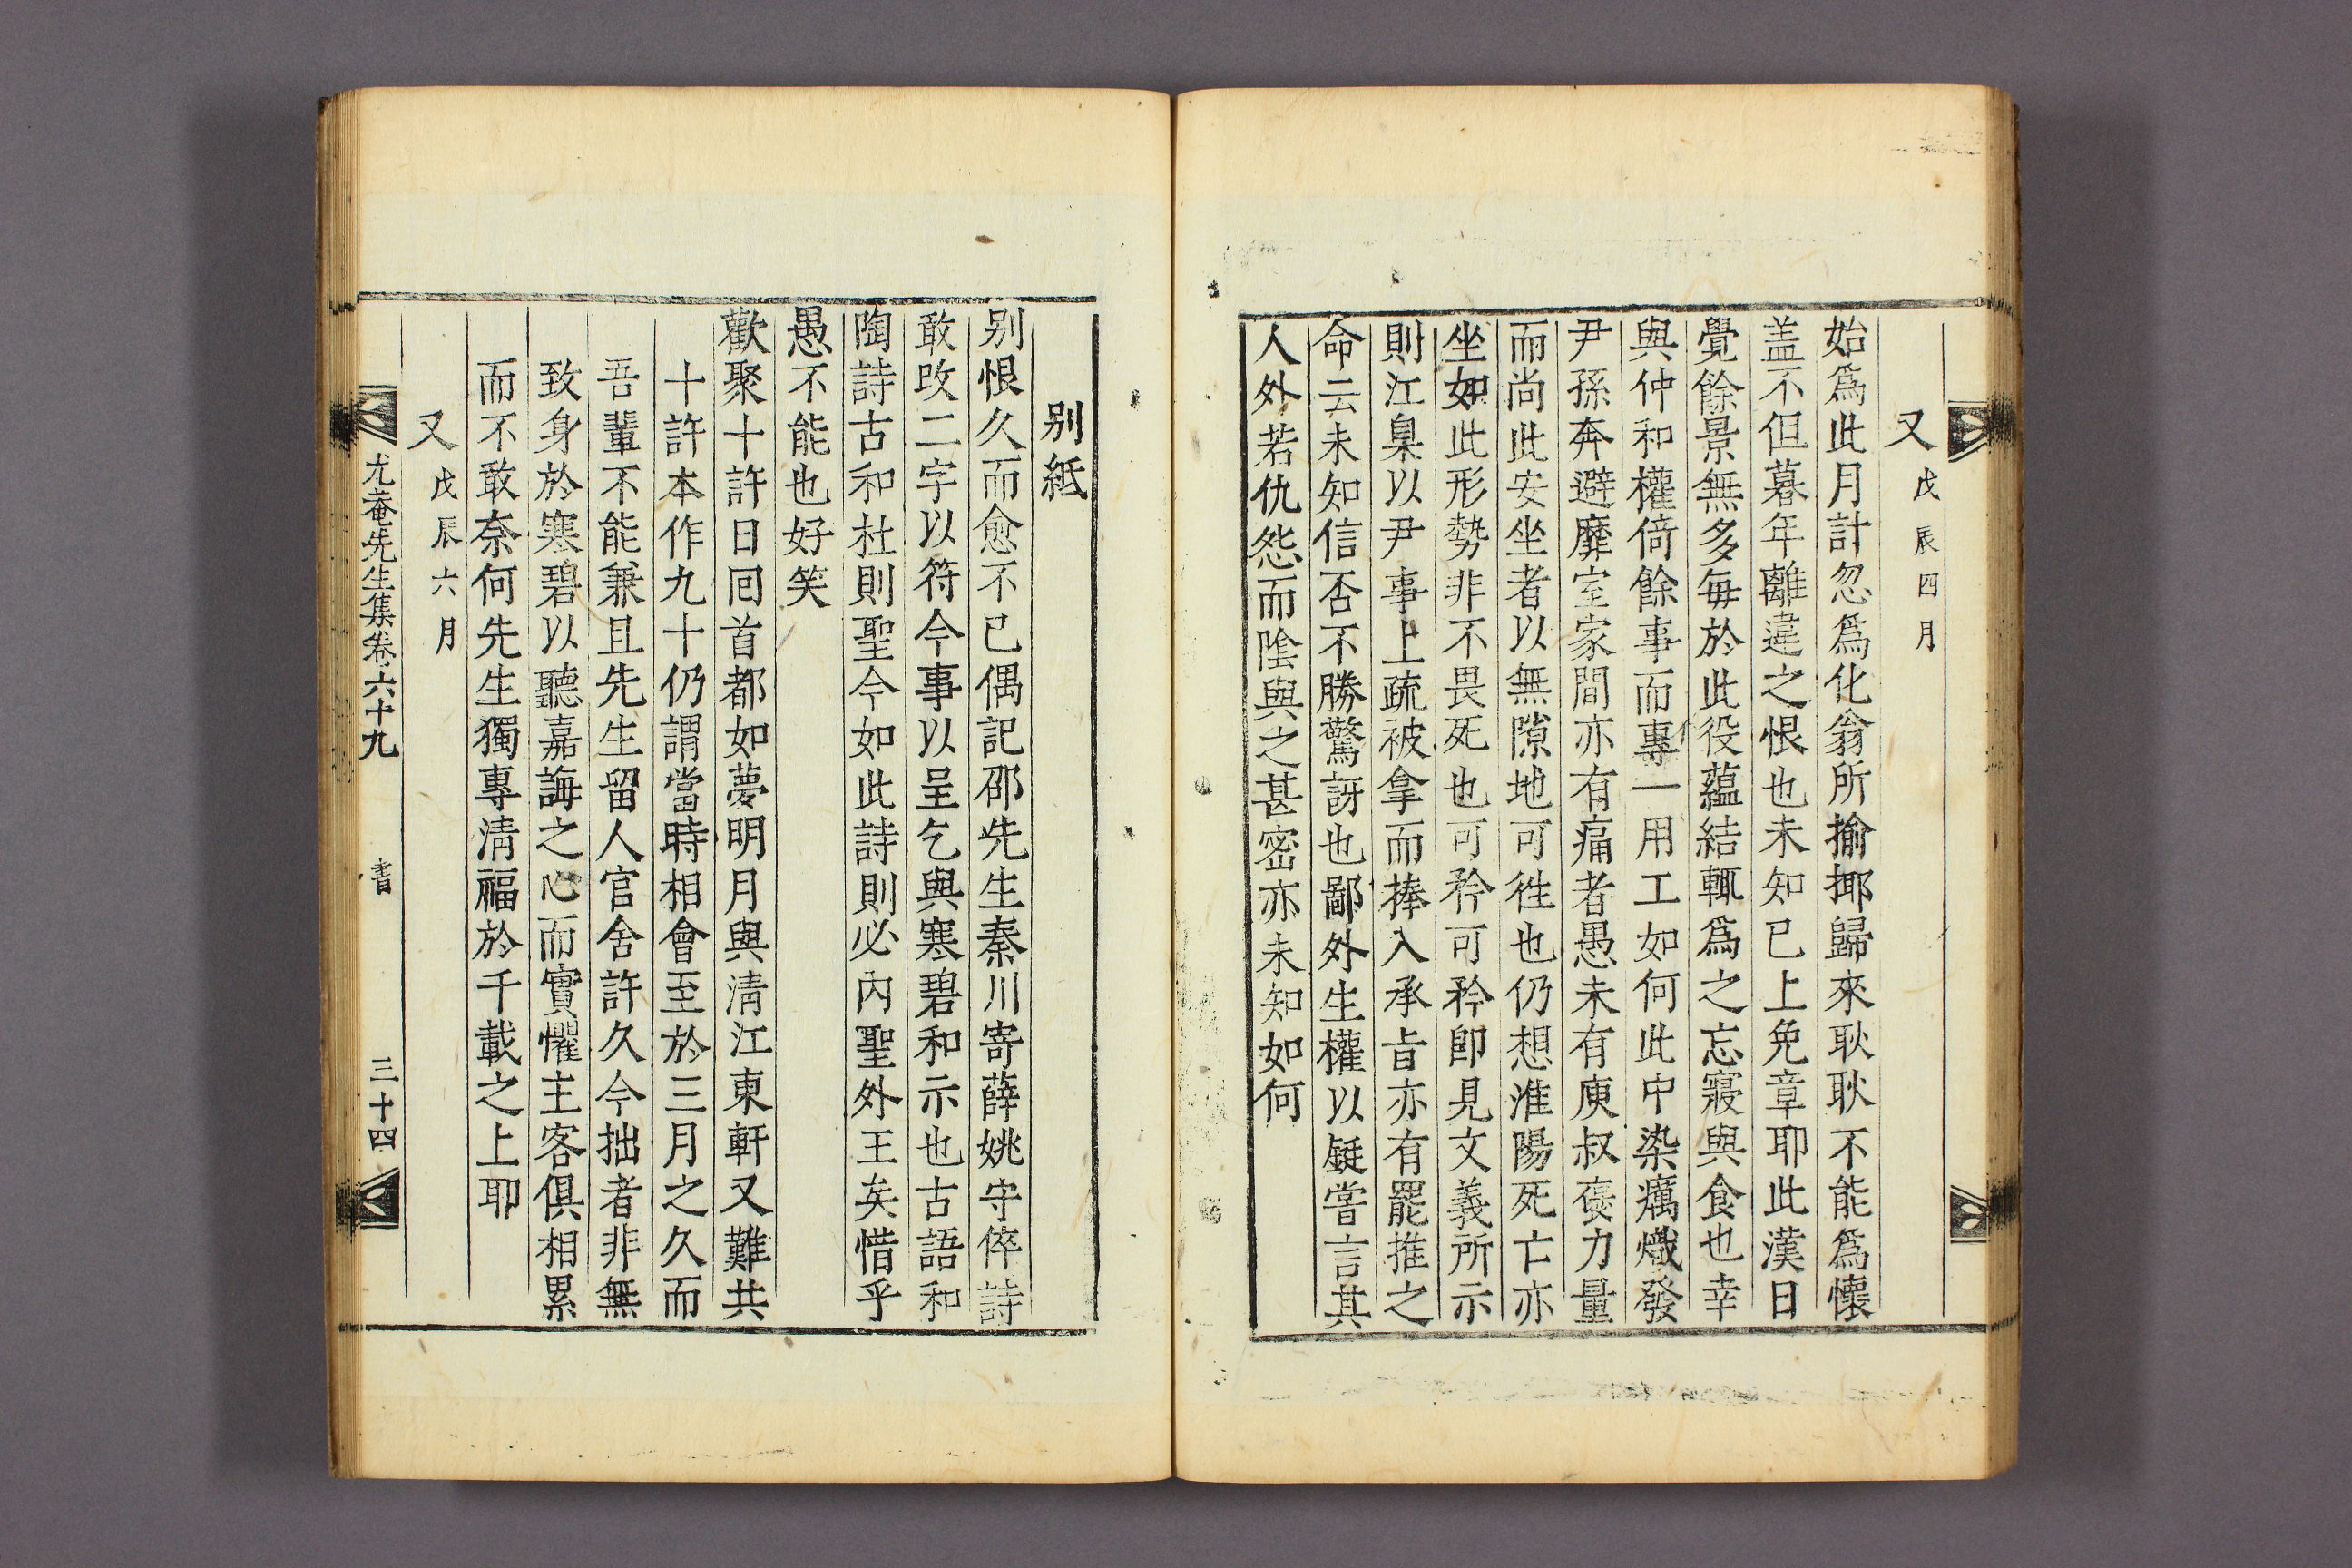 又 戊辰四月
始爲此月計忽爲化翁所揄揶歸來耿耿不能爲懷
盖不但暮年離違之恨也未知已上免章耶此漢日
覺餘景無多每於此役蘊結輒爲之忘寢與食也幸
與仲和權倚餘事而專一用工如何此中染癘熾發
尹孫奔避靡室家間亦有痛者愚未有庾叔褒力量
而尚此安坐者以無隙地可徃也仍想淮陽死亡亦
坐如此形勢非不畏死也可矜可矜卽見文義所示
則江臬以尹事上疏被拿而捧入承旨亦有罷推之
命云未知信否不勝驚訝也鄙外生權以鋌嘗言其
人外若仇怨而陰與之甚密亦未知如何
別紙
別恨久而愈不已偶記邵先生秦川寄薛姚守倅詩
敢改二字以符今事以呈乞與寒碧和示也古語和
陶詩古和杜則聖今如此詩則必內聖外王矣惜乎
愚不能也好笑
歡聚十許日囘首都如夢明月與淸江東軒又難共
十許本作九十仍謂當時相會至於三月之久而
吾輩不能兼且先生留人官舍許久今拙者非無
致身於寒碧以聽嘉誨之心而實懼主客俱相累
而不敢奈何先生獨專淸福於千載之上耶
又 戊辰六月
尤菴先生集卷六十九 書 三十四